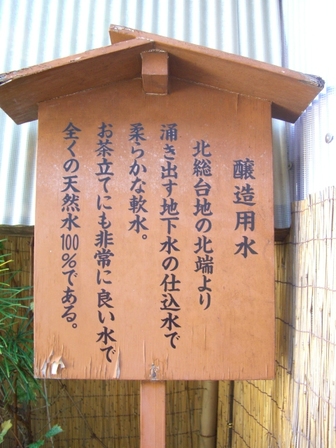 醸造用水
北総台地の北端より
涌き出す地下水の仕込水で
柔らかな軟水。
お茶立てにも非常に良い水で
全くの天然水100%である。